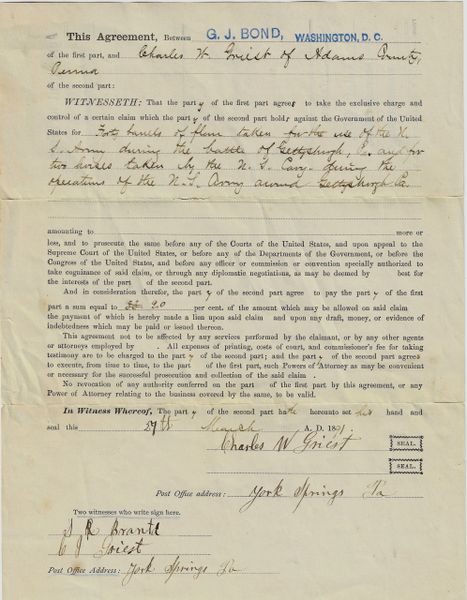 This Agreement, Between G. J. BOND, WASHINGTON, D. C.
of the first part, and Charles W. Griest of Adams County,
Penna
of the second part:
WITNESSETH: That the party of the first part agrees to take the exclusive charge and
control of a certain claim which the party of the second part holds against the Government of the United
States for Forty barrels of flour taken for the use of the U.
S. Army during the battle of Gettysburgh, Pa. and for
two horses taken by the U. S. Cavy. during the
operations of the U. S. Army around Gettysburgh Pa.
amounting to more or
less, and to prosecute the same before any of the Courts of the United States, and upon appeal to the
Supreme Court of the United States, or before any of the Departments of the Government, or before the
Congress of the United States, and before any officer or commission or convention specially authorized to
take cognizance of said claim, or through any diplomatic negotiations, as may be deemed by best for
the interests of the part of the second part.
And in consideration thereof, the party of the second part agree to pay the party of the first
part a sum equal to 20 per cent. of the amount which may be allowed on said claim
the payment of which is hereby made a lien upon said claim and upon any draft, money, or evidence of
indebtedness which may be paid or issued thereon.
This agreement not to be affected by any services performed by the claimant, or by any other agents
or attorneys employed by All expenses of printing, costs of court, and commissioner's fee for taking
testimony are to be charged to the party of the second part; and the party of the second part agrees
to execute, from time to time, to the part of the first part, such Powers of Attorney as may be convenient
or necessary for the successful prosecution and collection of the said claim .
No revocation of any authority conferred on the part of the first part by this agreement, or any
Power of Attorney relating to the business covered by the same, to be valid.
In Witness Whereof, The party of the second part hath hereunto set his hand and
seal this 27th March A. D. 1891.
Charles W Griest SEAL.
SEAL.
Post Office address: York Springs Pa
Two witnesses who write sign here.
R Brantd
C J Griest
Post Office Address: York Springs Pa